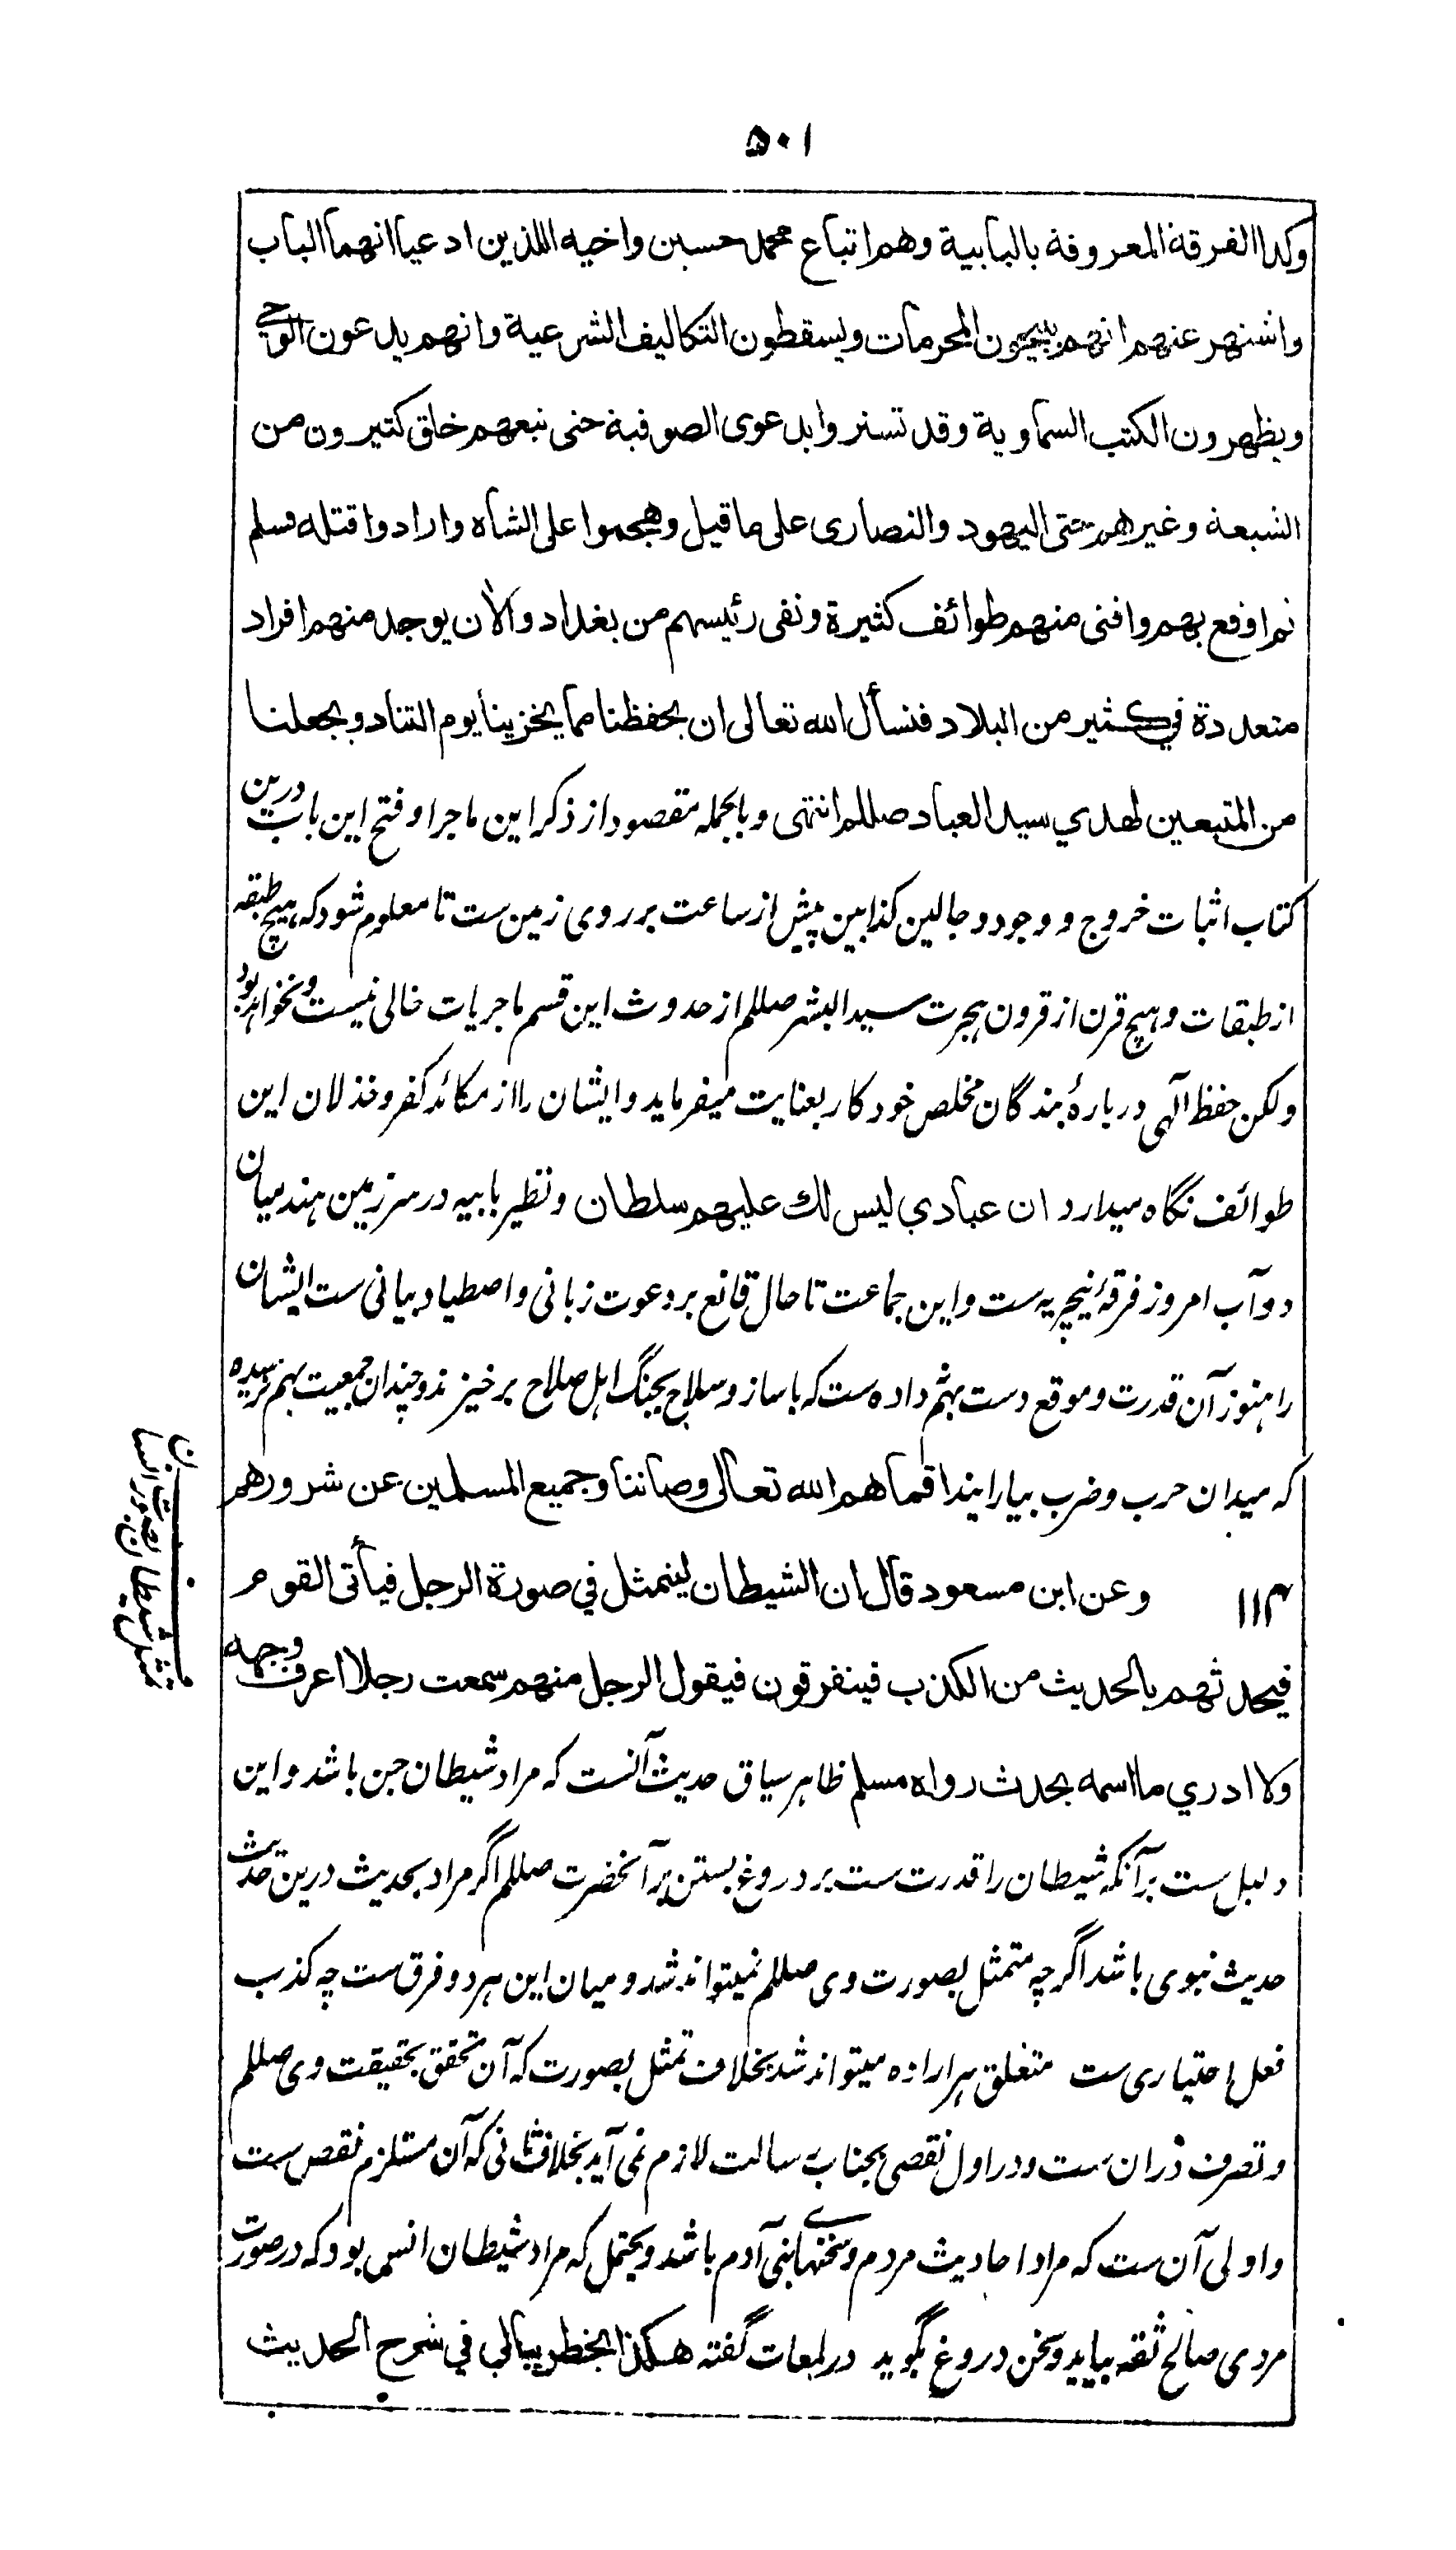 ۵۰۱
وكذا الفرقة المعروفة بالبابية وهم اتباع محمد حسين واخيه اللذين ادعيا انهما الباب
واشتهر عنهم انهم يبيحون المحرمات ويسقطون التكاليف الشرعية وانهم يدعون الوحي
ويظهرون الكتب السماوية وقد تستروا بدعوى الصوفية حتى تبعهم خلق كثيرون من
الشيعة وغيرهم حتى اليهود والنصارى على ما قيل وهجموا على الشاه وارادوا قتله فسلم
ثم اوقع بهم وافنى منهم طوائف كثيرة ونفى رئيسهم من بغداد والآن يوجد منهم افراد
متعددة في كثير من البلاد فنسأل الله تعالى ان يحفظنا مما يخزينا يوم التناد ويجعلنا
من المتبعين لهدي سيد العباد صللم انتهى وبالجمله مقصود از ذكر اين ماجرا وفتح اين باب درين
كتاب اثبات خروج ووجود دجالين كذابين پيش از ساعت بر روى زمين ست تا معلوم شود كه هيچ طبقه
از طبقات وهيچ قرن از قرون هجرت سيد البشر صللم از حدوث اين قسم ماجريات خالى نيست ونخواهد بود
ولكن حفظ آلهى دربارۀ بندگان مخلص خود كار بعنايت ميفرمايد وايشان را از مكائد كفر وخذلان اين
طوائف نگاه ميدارد ان عبادي ليس لك عليهم سلطان ونظير بابيه در سرزمين هند ميان
دوآب امروز فرقۀ نيچريه ست واين جماعت تا حال قانع بر دعوت زبانى واصطياد بيانى ست ايشان
را هنوز آن قدرت وموقع دست بهم نداده ست كه با ساز وسلاح بجنگ اهل صلاح برخيزند وچندان جمعيت بهم نرسيده
كه ميدان حرب وضرب بيارايند اقماهم الله تعالى وصاننا وجميع المسلمين عن شرورهم
۱۱۳ وعن ابن مسعود قال ان الشيطان ليتمثل في صورة الرجل فيأتى القوم
تمثل شيطان بصورت انسان
فيحدثهم بالحديث من الكذب فيتفرقون فيقول الرجل منهم سمعت رجلا اعرف وجهه
ولا ادري ما اسمه يحدث رواه مسلم ظاهر سياق حديث آنست كه مراد شيطان جن باشد واين
دليل ست برآنكه شيطان را قدرت ست بر دروغ بستن برآنحضرت صللم اگر مراد بحديث درين حديث
حديث نبوى باشد اگرچه متمثل بصورت وى صللم نميتواند شد وميان اين هر دو فرق ست چه كذب
فعل اختيارى ست متعلق هر اراده ميتواند شد بخلاف تمثل بصورت كه آن تحقق بحقيقت وى صللم
وتصرف دران ست ودر اول نقصى بجناب رسالت لازم نمى آيد بخلاف ثانى كه آن مستلزم نقص ست
واولى آن ست كه مراد احاديث مردم وسخنهاى بنى آدم باشد ويحتمل كه مراد شيطان انس بود كه در صورت
مردى صالح ثقه بيايد وسخن دروغ بگويد در لمعات گفته هكذا يخطر ببالي في شرح الحديث